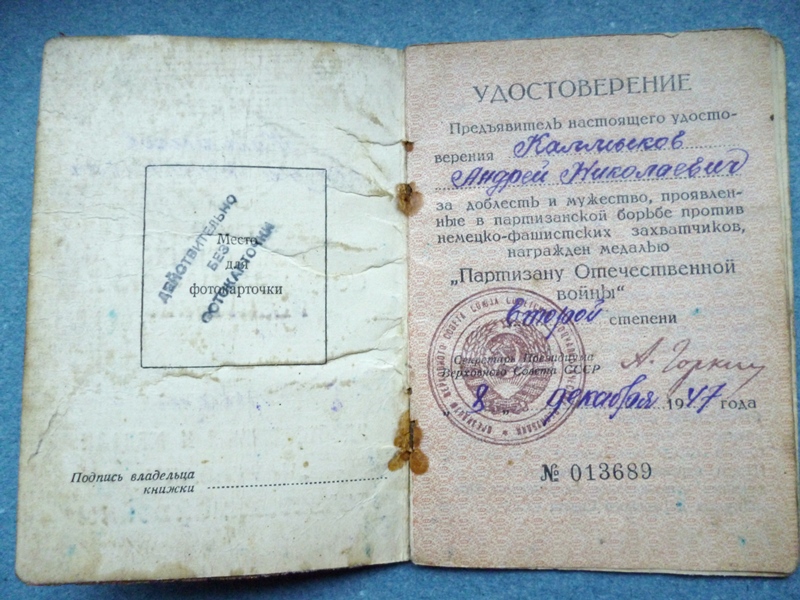 Место
для
фотокарточки
ДЕЙСТВИТЕЛЬНО
БЕЗ
ФОТОКАРТОЧКИ
Подпись владельца
книжки
УДОСТОВЕРЕНИЕ
Предъявитель настоящего удосто-
верения Калмыков
Андрей Николаевич
за доблесть и мужество, проявлен-
ные в партизанской борьбе против
немецко-фашистских захватчиков,
награжден медалью
„Партизану Отечественной
войны“
второй степени
Секретарь Президиума
Верховного Совета СССР А. Горкин
„8„ декабря 1947 года
№ 013689